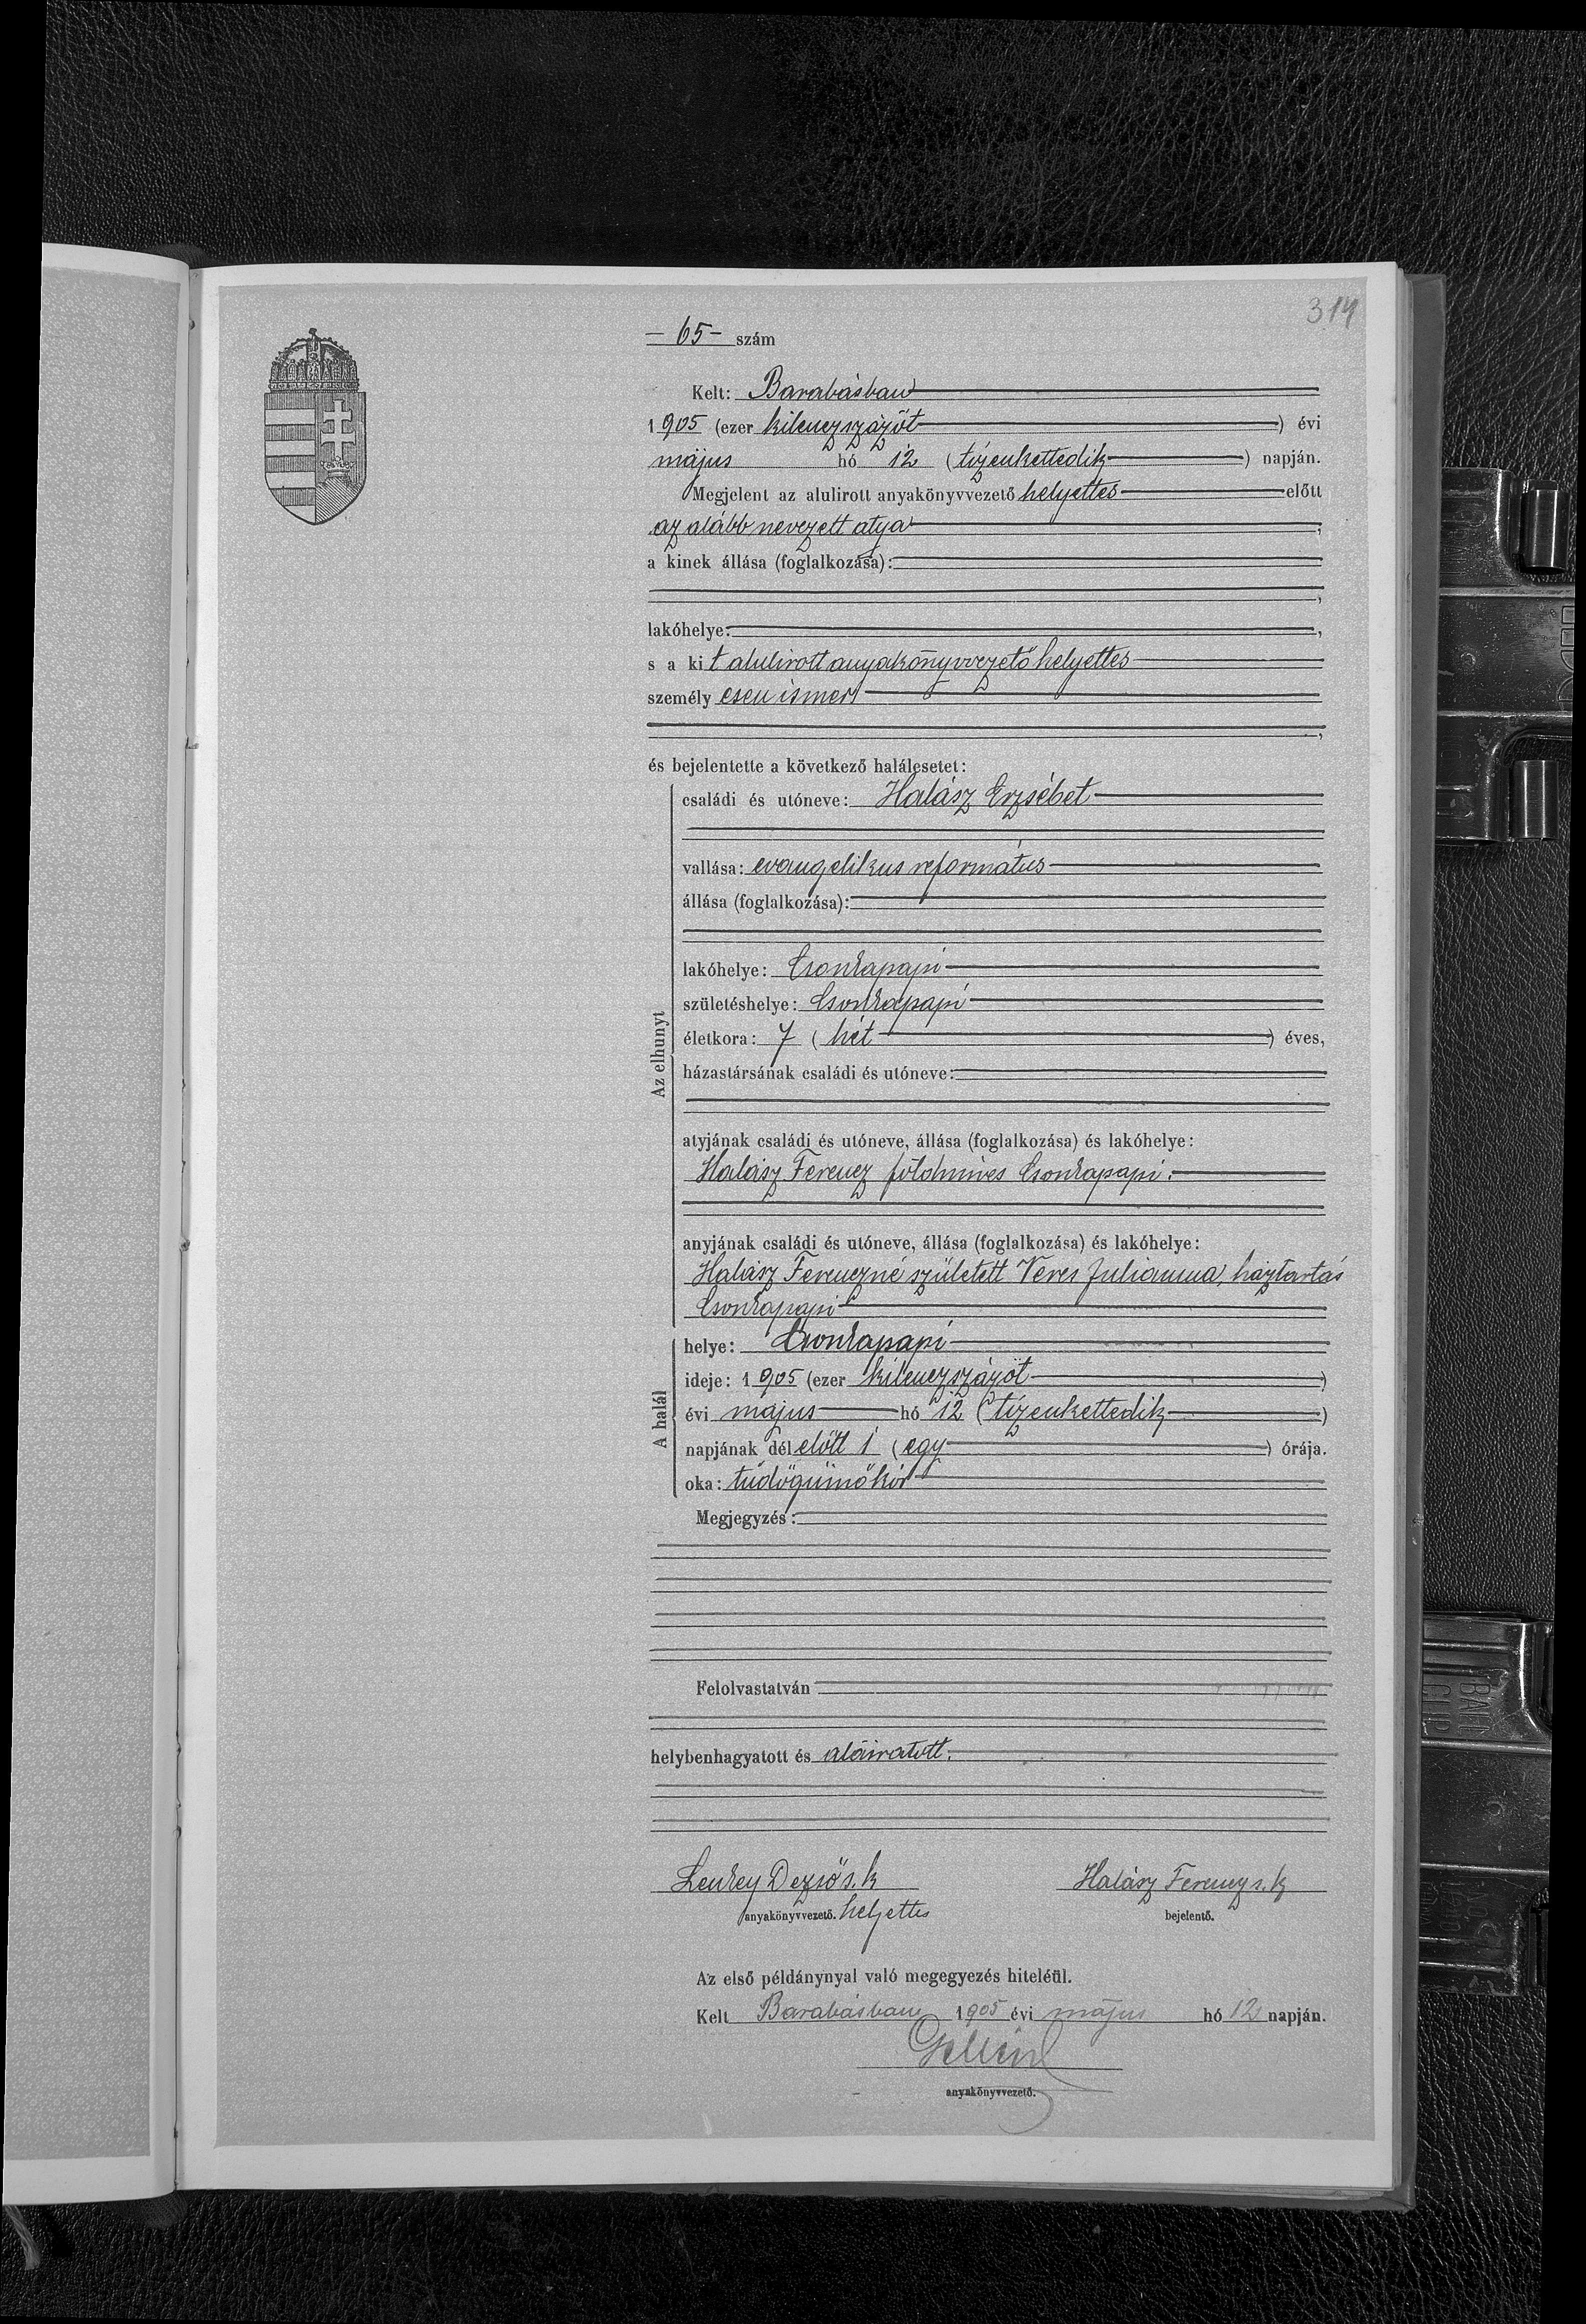 314
— 65 — szám
Kelt: Barabásban
1905 (ezer kilenczszázöt) évi
május hó 12 (tizenkettedik) napján.
Megjelent az alulirott anyakönyvvezető helyettes előtt
az alább nevezett atya,
a kinek állása (foglalkozása):
,
lakóhelye: ,
s a kit alulirott anyakönyvvezető helyettes
személyesen ismer
,
és bejelentette a következő halálesetet:
Az elhunyt
családi és utóneve: Halász Erzsébet
vallása: evangelikus református
állása (foglalkozása):
lakóhelye: Csonkapapi
születéshelye: Csonkapapi
életkora: 7 (hét) éves,
házastársának családi és utóneve:
atyjának családi és utóneve, állása (foglalkozása) és lakóhelye:
Halász Ferencz földmíves Csonkapapi.
anyjának családi és utóneve, állása (foglalkozása) és lakóhelye:
Halász Ferenczné született Veres Julianna, háztartás
Csonkapapi
A halál
helye: Csonkapapi
ideje: 1905 (ezer kilenczszázöt)
évi május hó 12 (tizenkettedik)
napjának dél előtt 1 (egy) órája.
oka: tüdőgümőkór
Megjegyzés:
Felolvastatván
helybenhagyatott és aláiratott.
Lenkey Dezső s. k. Halász Ferencz s. k.
anyakönyvvezető. helyettes bejelentő.
Az első példánynyal való megegyezés hiteléül.
Kelt Barabásban 1905 évi május hó 12 napján.
anyakönyvvezető.